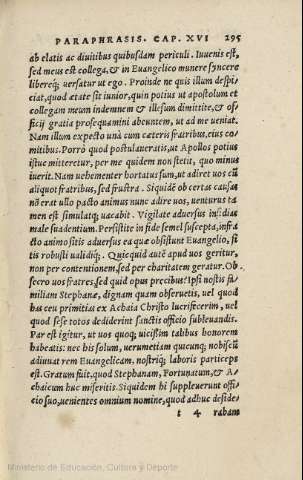 PARAPHRASIS. CAP. XVI 295
ab elatis ac diuitibus quibusdam periculi. Iuuenis est,
sed meus est collega, & in Euangelico munere syncere
libereq; uersatur ut ego. Proinde ne quis illum despi
ciat, quod ætate sit iunior, quin potius ut apostolum et
collegam meum indemnem & illæsum dimittite, & of-
ficij gratia prosequamini abeuntem, ut ad me ueniat.
Nam illum expecto unà cum cæteris fratribus, eius co-
mitibus. Porrò quod postulaueratis, ut Apollos potius
istuc mitteretur, per me quidem non stetit, quo minus
iuerit. Nam uehementer hortatus sum, ut adiret uos cū
aliquot fratribus, sed frustra. Siquidē ob certas causas
nō erat ullo pacto animus nunc adire uos, uenturus ta
men est simulatq; uacabit. Vigilate aduersus insidias
male suadentium. Persistite in fide semel suscepta, infra
cto animo sitis aduersus ea quæ obsistunt Euangelio, si
tis robusti ualidiq;. Quicquid autē apud uos geritur,
non per contentionem, sed per charitatem geratur. Ob
secro uos fratres, sed quid opus precibus? Ipsi nostis fa
miliam Stephanæ, dignam quam obseruetis, uel quod
hac ceu primitias ex Achaia Christo lucrifecerim, uel
quod sese totos dediderint sanctis officio subleuandis.
Par est igitur, ut uos quoq; uicißim talibus honorem
habeatis: nec his solum, uerumetiam quicunq; nobiscū
adiuuat rem Euangelicam, nostriq; laboris particeps
est. Gratum fuit, quod Stephanam, Fortunatum, & A-
chaicum huc miseritis. Siquidem hi suppleuerunt offi-
cio suo, uenientes omnium nomine, quod adhuc deside/
t 4 rabam
Ministerio de Educación, Cultura y Deporte